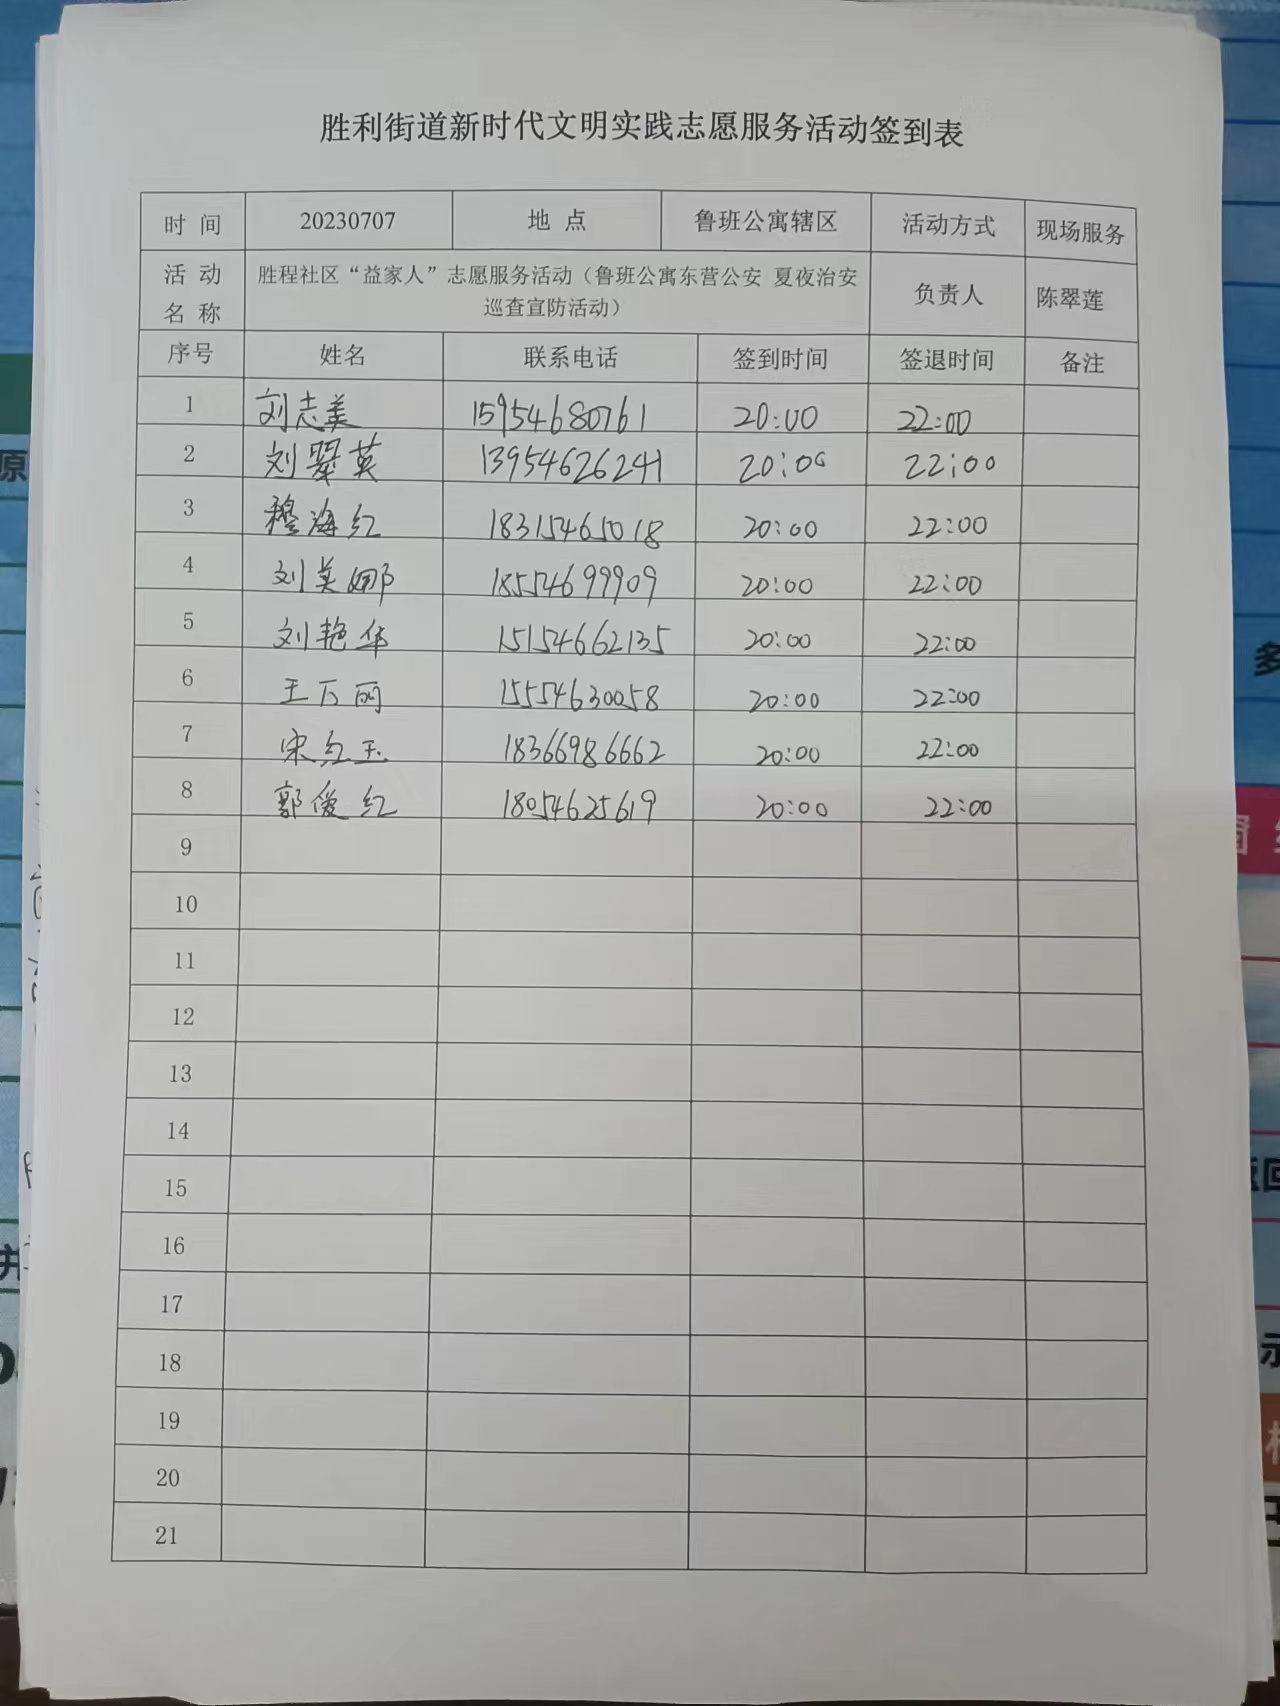 胜利街道新时代文明实践志愿服务活动签到表
时 间 20230707 地 点 鲁班公寓辖区 活动方式 现场服务
活 动 名 称 胜程社区“益家人”志愿服务活动（鲁班公寓东营公安 夏夜治安
巡查宣防活动） 负责人 陈翠莲
序号 姓名 联系电话 签到时间 签退时间 备注
1 刘志美 15954680761 20:00 22:00
2 刘翠英 13954626241 20:00 22:00
3 穆海红 18315465018 20:00 22:00
4 刘美娜 18554699909 20:00 22:00
5 刘艳华 15154662135 20:00 22:00
6 王万丽 15554630058 20:00 22:00
7 宋红玉 18366986662 20:00 22:00
8 郭俊红 18054625619 20:00 22:00
9
10
11
12
13
14
15
16
17
18
19
20
21